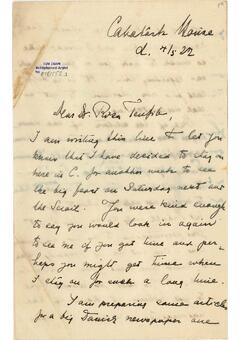 Calabash House
d. 4/5 22
Dear Dr. Temple,
I am writing this line to let you
know that I have decided to stay on
here in C. for another week to see
the big feast on Saturday next
You were kind enough
to say you would look in again
to see me if you got time and per-
haps you might get time when
I stay on for such a long time.
I am preparing some articles
for a big Danish newspaper and